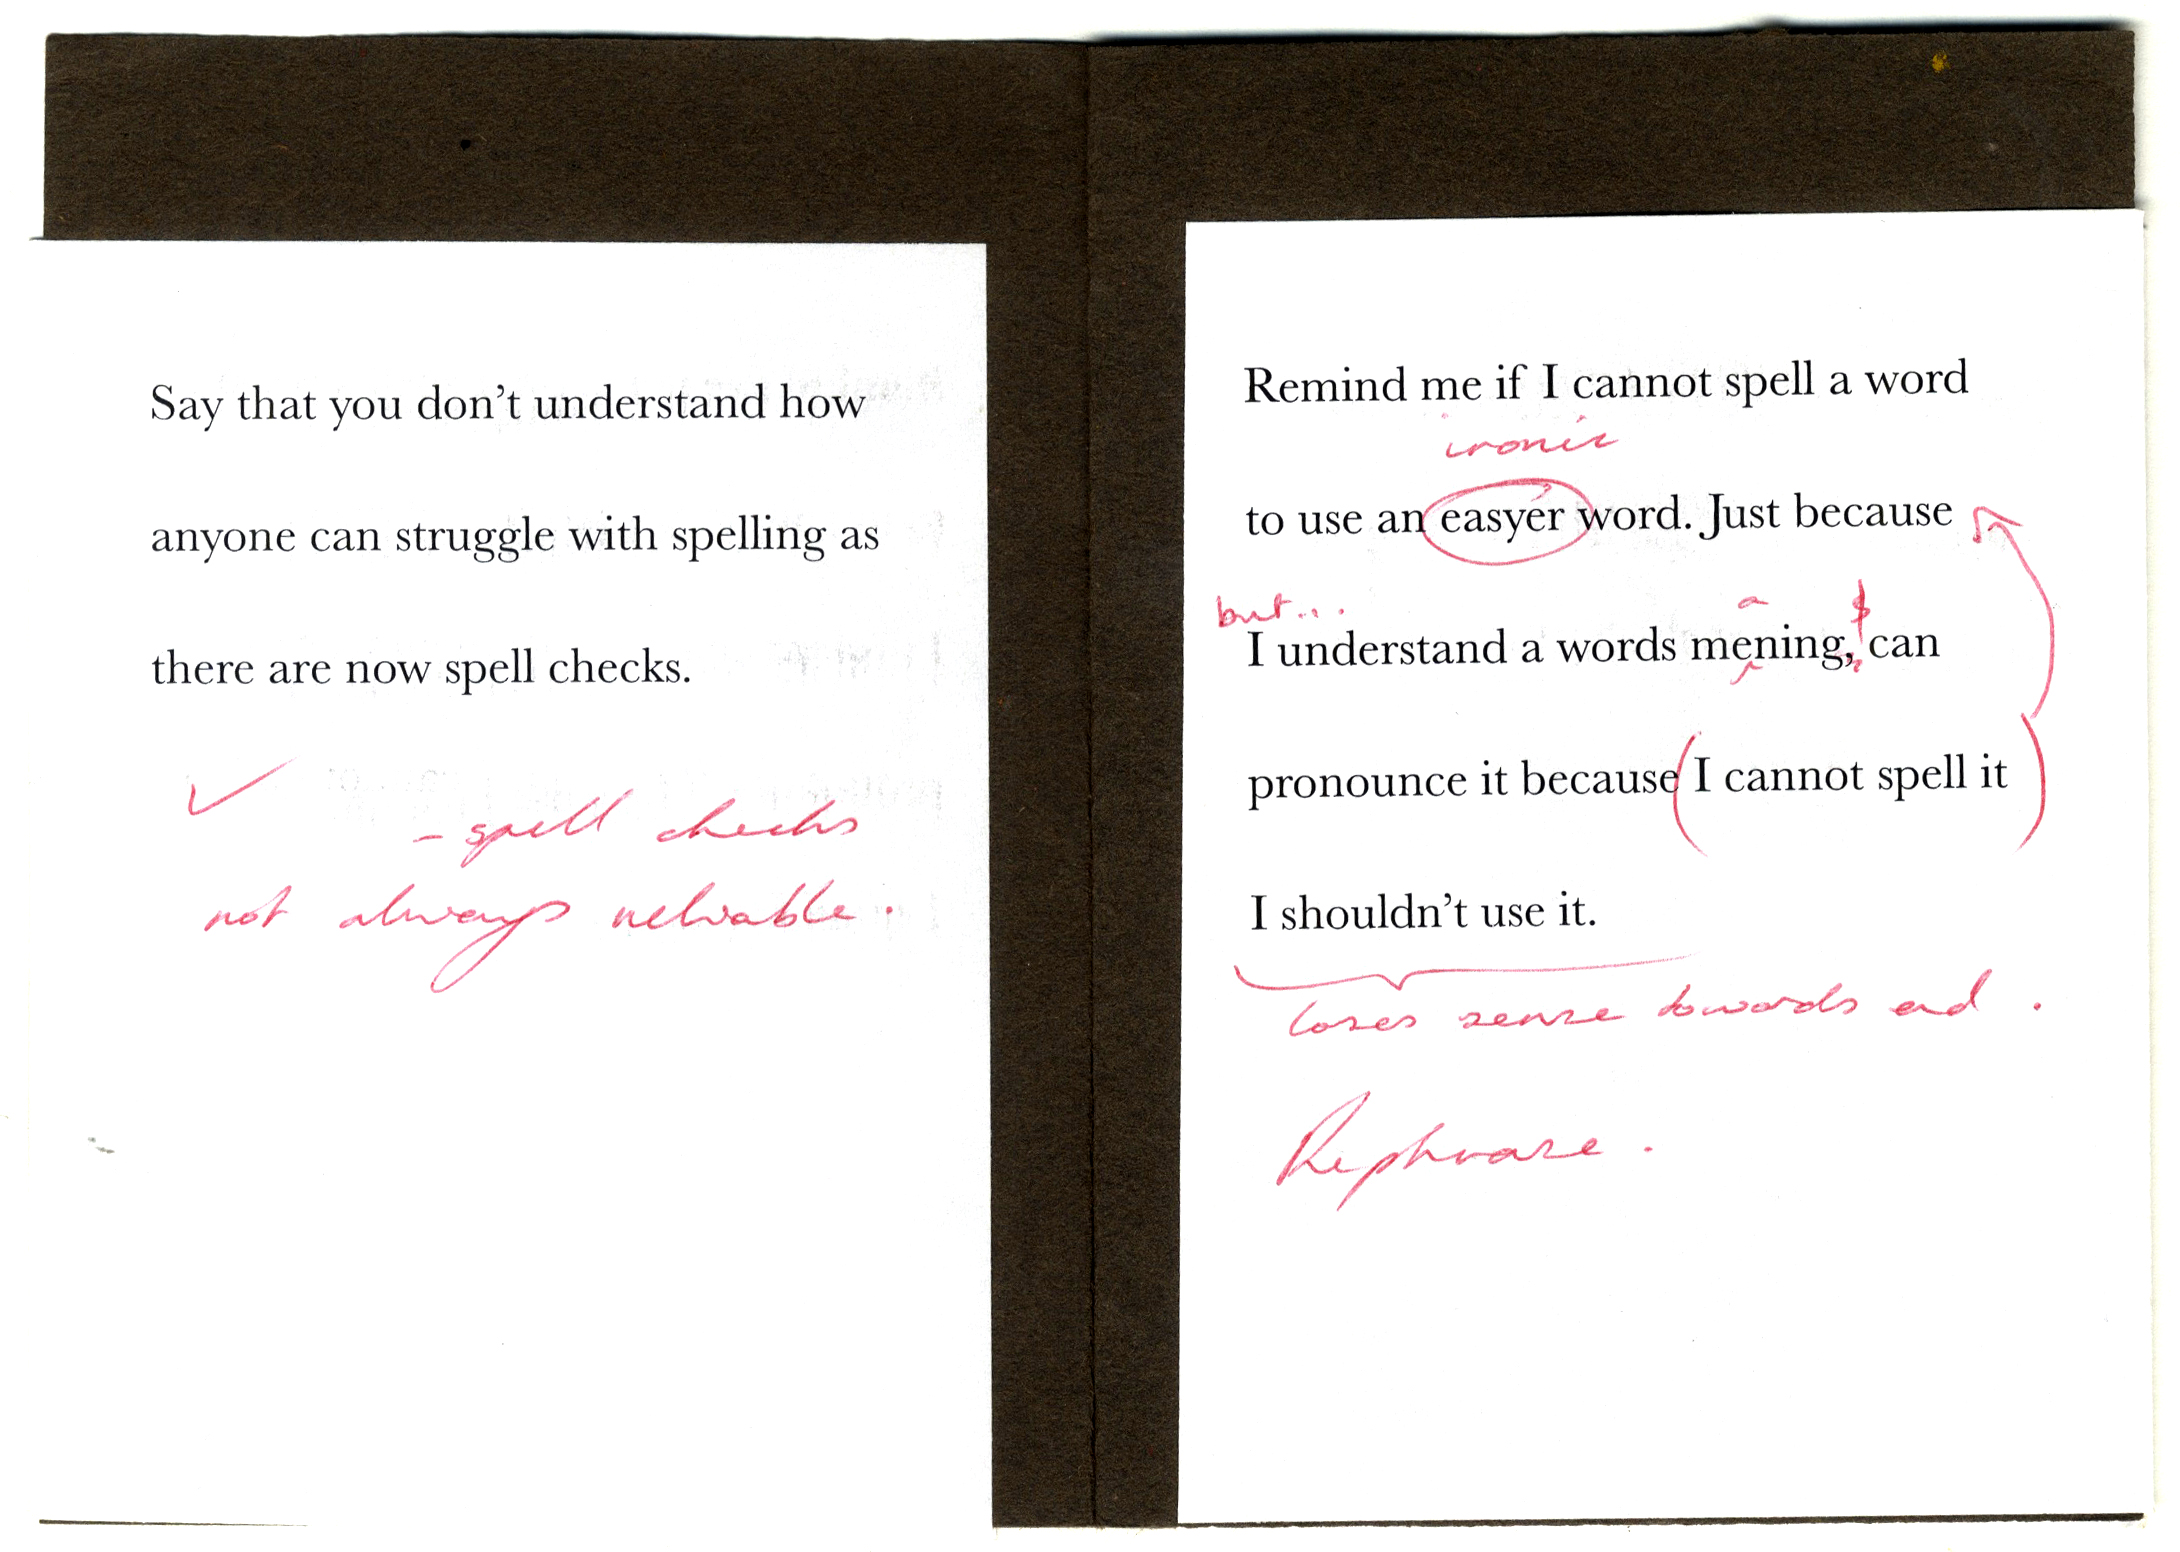 Say that you don't understand how
anyone can struggle with spelling as
there are now spell checks.
- spell checks
not always reliable.
Remind me if I cannot spell a word
ironic
to use an easyer word. Just because
but...
a &
I understand a words mening, can
pronounce it because I cannot spell it
I shouldn't use it.
loses sense towards end.
Rephrase.